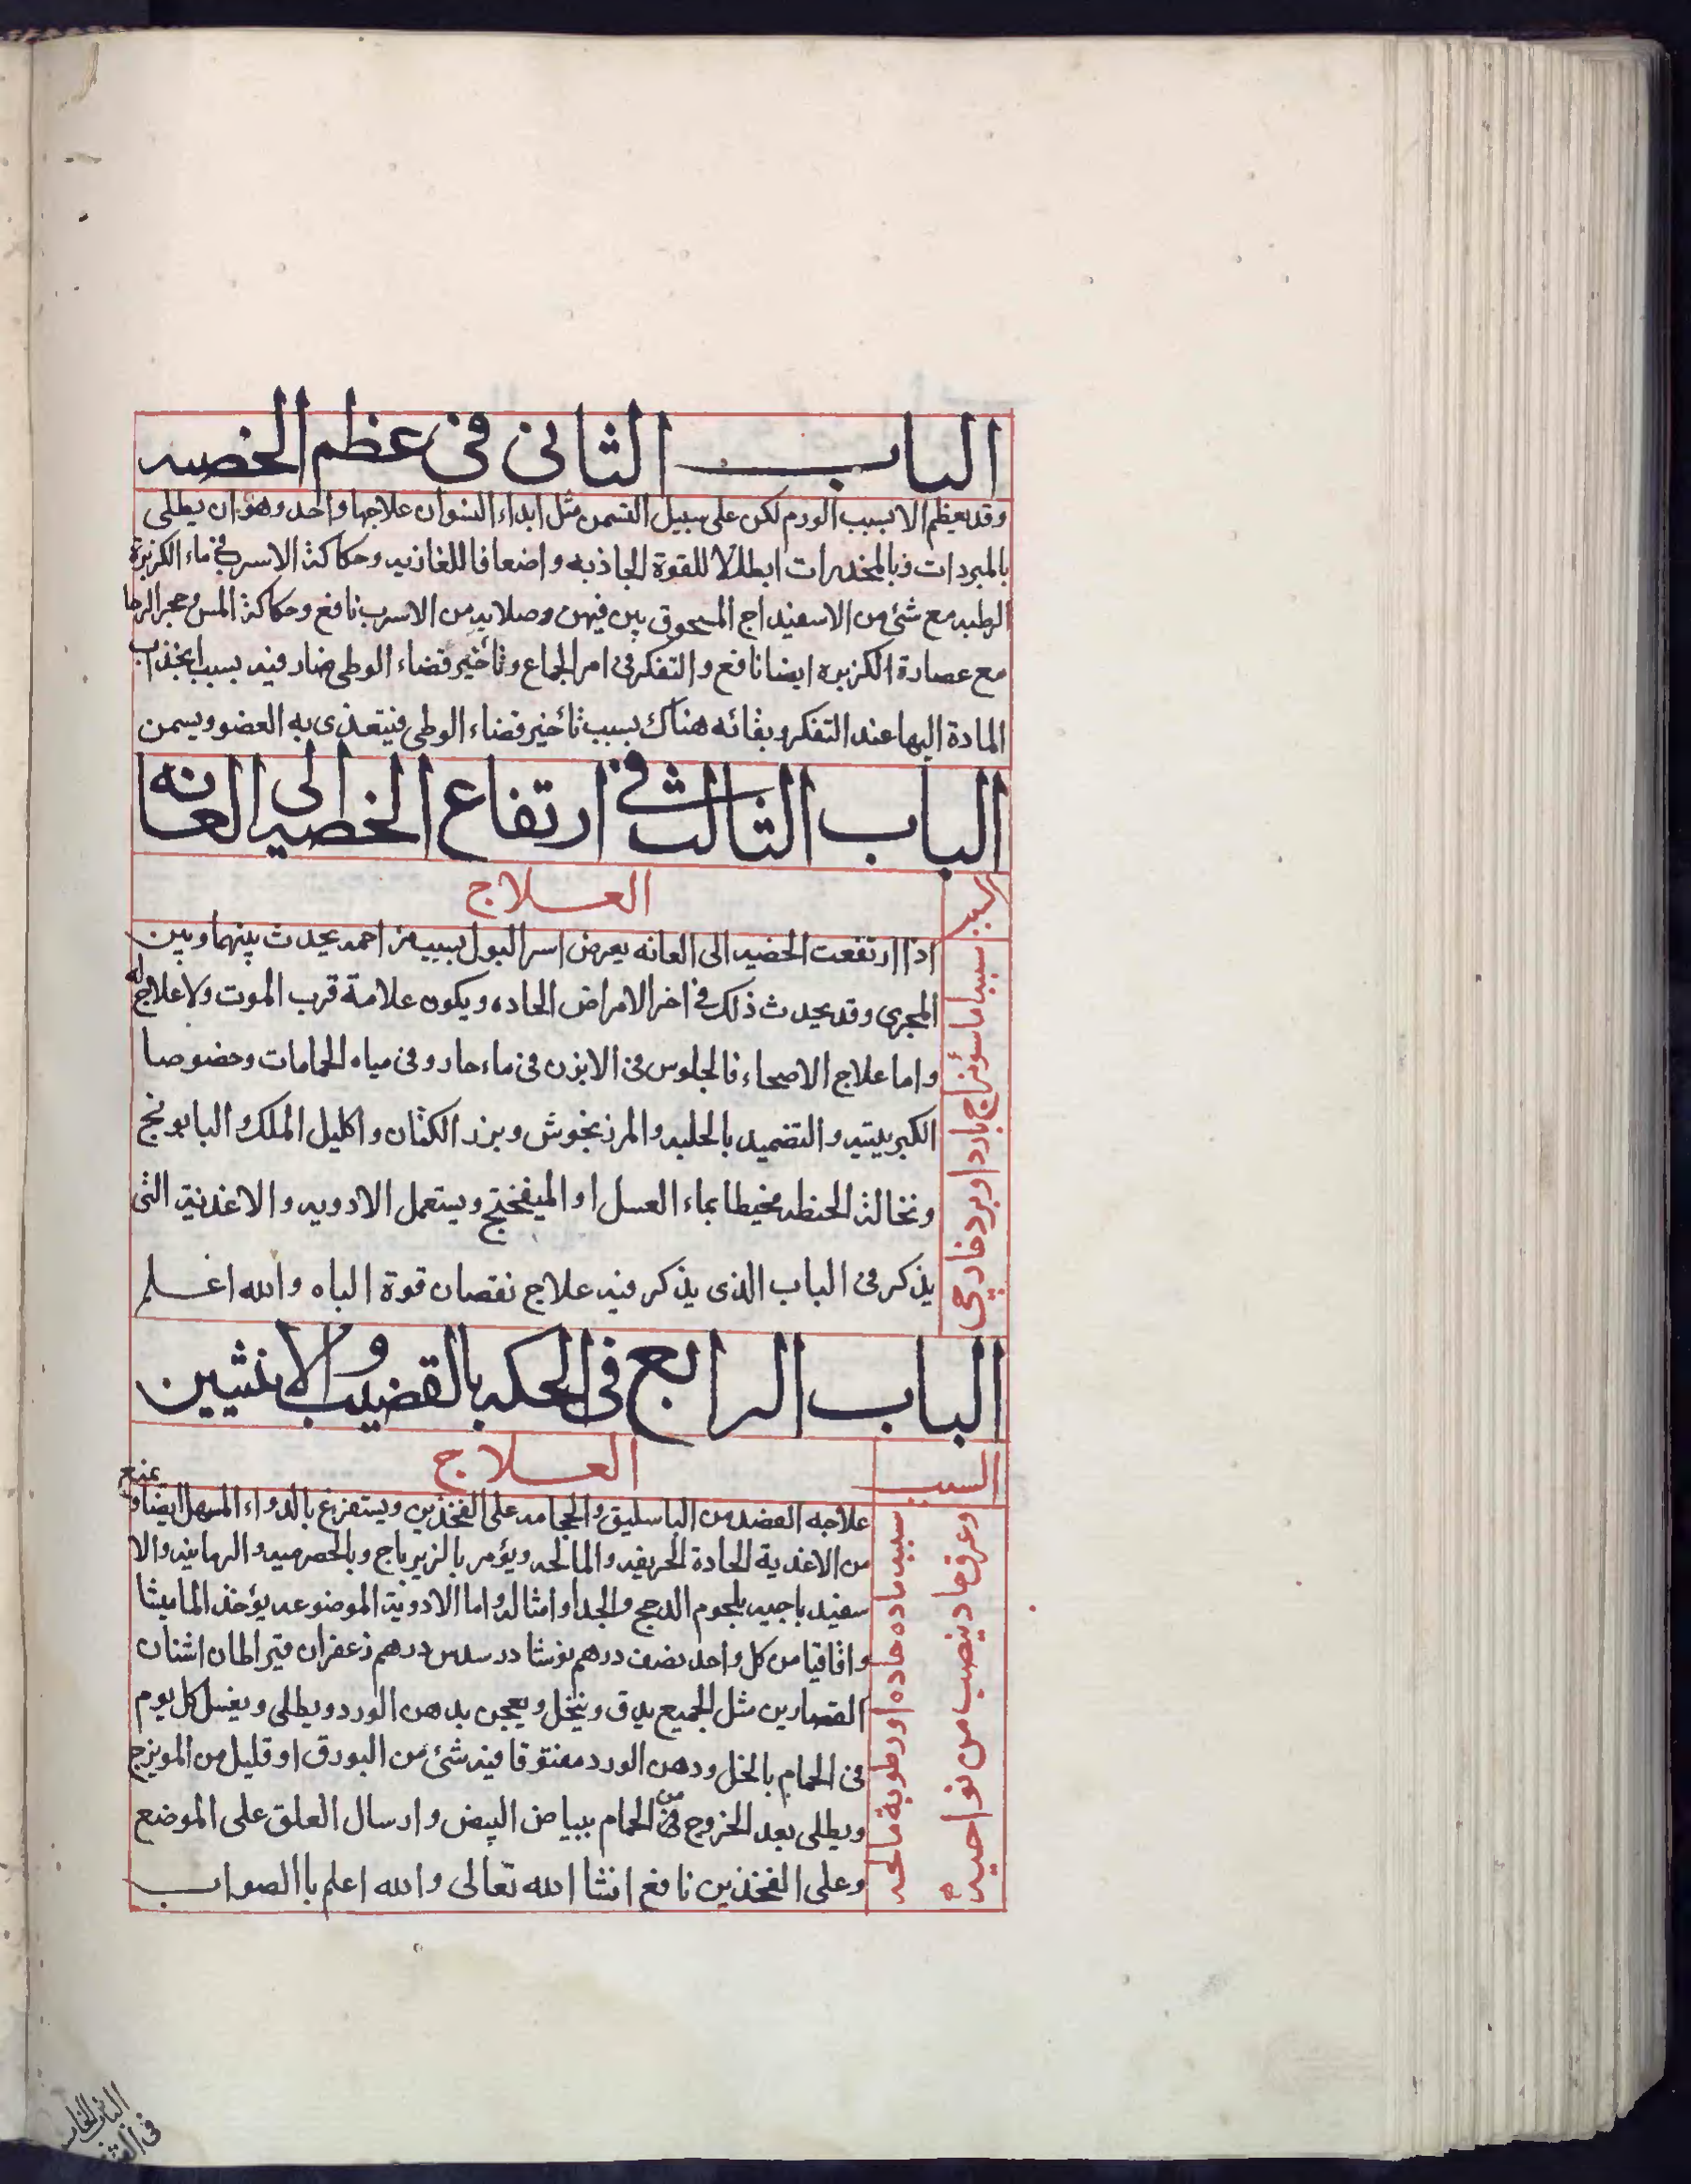 الباب الثانى فى عظم الخصيه
وقد يعظم لا بسبب الورم لكن على سبيل التسمن مثل ابداء النسوان علاجها واحد وهو ان يطلى
بالمبردات وبالمخدرات ابطالا للقوة الجاذبه واضعافا للغاذيه وحكاكة الاسرب فى ماء الكزبرة
الرطبه مع شئ من الاسفيداج المسحوق بين فيهن وصلايه من الاسرب نافع وحكاكة المسن وحجر الرحا
مع عصارة الكزبره ايضا نافع والتفكر فى امر الجماع وتأخير قضاء الوطى ضار فيه بسبب انجذاب
المادة اليها عند التفكر وبقائه هناك بسبب تأخير قضاء الوطى فيتغذى به العضو ويسمن
الباب الثالث فى ارتفاع الخصيه الى العانه
السبب
العلاج
سببها ما سؤمزاج بارد او برد خارجى
اذا ارتفعت الخصيه الى العانه يعرض اسر البول بسبب مزاحمه يحدث بينهما وبين
المجرى وقد يحدث ذلك فى اخر الامراض الحاده ويكون علامة قرب الموت ولا علاج له
واما علاج الاصحاء فالجلوس فى الابزن فى ماء حار وفى مياه الحمامات وخصوصا
الكبريتيه والتضميد بالحلبه والمرزنجوش وبزر الكتان واكليل الملك والبابونج
ونخالة الحنطه مخيطا بماء العسل او الميفختج ويستعمل الادويه والاغذية التى
يذكر فى الباب الذى يذكر فيه علاج نقصان قوة الباه والله اعلم
الباب الرابع فى الحكه بالقضيب والانثيين
السبب
العلاج
سببه ماده حاده او رطوبة مالحه
وعرق حاد ينصب من نواحيه
علاجه الفصد من الباسليق والحجامه على الفخذين ويستفرغ بالدواء المسهل ايضا ويمنع
من الاغذية الحادة الحريفه والمالحه ويؤمر بالزيرباج وبالحصرميه والرمانيه والا
سفيدباجيه بلحوم الدجج والجدا وامثاله واما الادوية الموضوعه يؤخذ الماميثا
واقاقيا من كل واحد نصف درهم نوشادر سدس درهم زعفران قيراطان اشنان
القصارين مثل الجميع يدق وينخل ويعجن بدهن الورد ويطلى ويغسل كل يوم
فى الحمام بالخل ودهن الورد مفتوقا فيه شئ من البورق او قليل من المويزج
ويطلى بعد الخروج من الحمام ببياض البيض وارسال العلق على الموضع
وعلى الفخذين نافع انشا الله تعالى والله اعلم باالصواب
الباب الخامس
فى